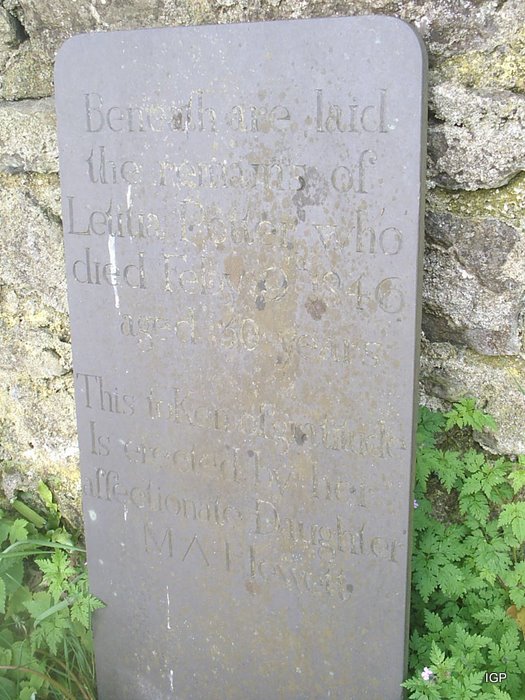 Beneath are laid
the remains of
Letitia Potter who
died Feby 9th 1846
aged 50 years
This token of gratitude
Is erected by her
affectionate Daughter
M A Hewett
IGP